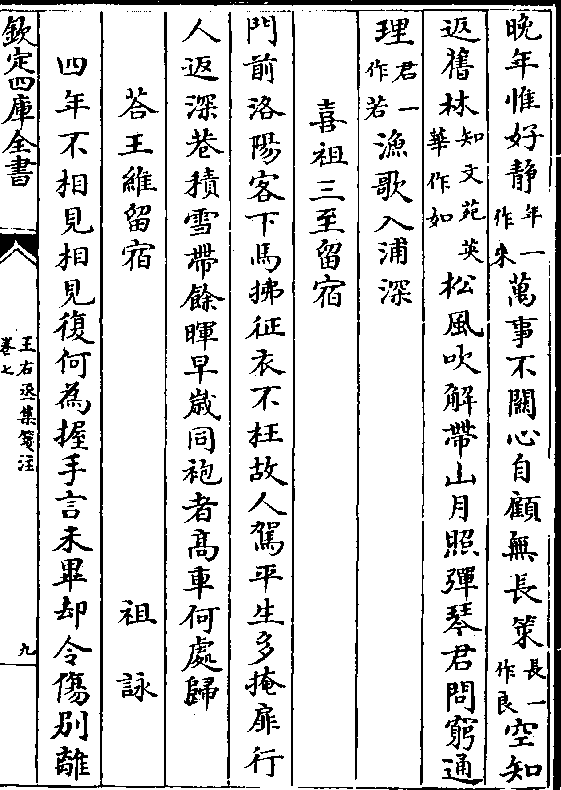 晚年惟好静年一作来萬事不關心自顧無長策長一作良空知
返舊林知文苑英華作如松風吹解帶山月照彈琴君問窮通
理君一作若漁歌入浦深
喜祖三至留宿
門前洛陽客下馬拂征衣不枉故人駕平生多掩扉行
人返深巷積雪帶餘暉早歲同袍者髙車何處歸
荅王維留宿　祖詠
四年不相見相見復何為握手言未畢却令傷别離
欽定四庫全書
王右丞集箋注
卷七
九